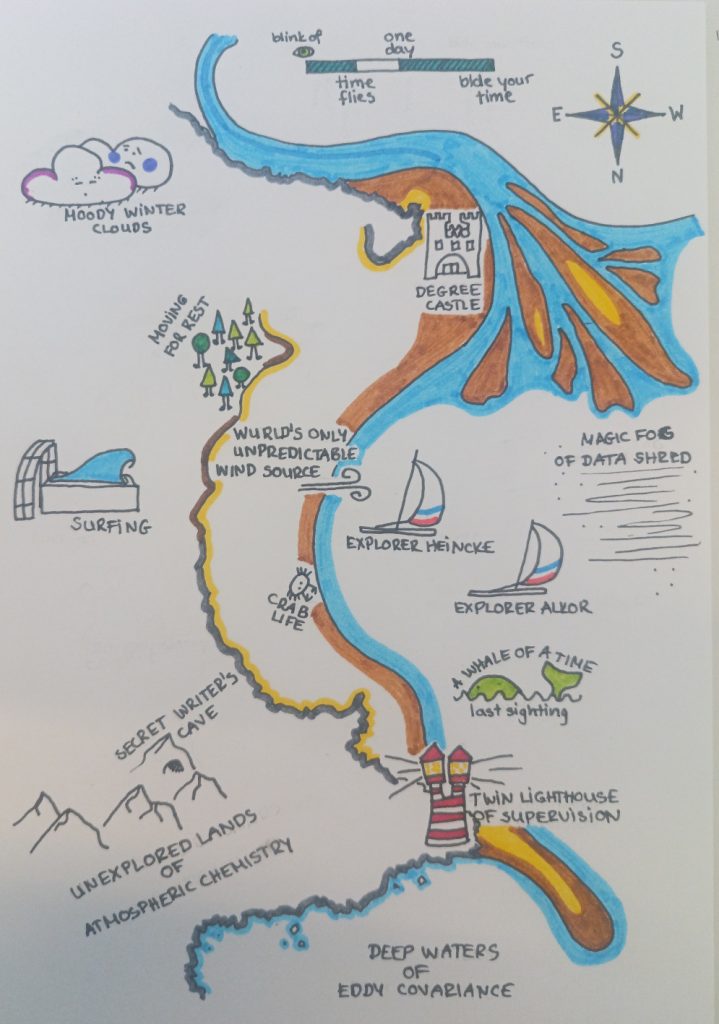 blink of
one
day
time
flies
bide your
time
S
E
W
N
MOODY WINTER
CLOUDS
DEGREE
CASTLE
MOVING
FOR REST
WURLD'S ONLY
UNPREDICTABLE
WIND SOURCE
MAGIC FOG
OF DATA SHRED
SURFING
EXPLORER HEINCKE
CRAB
LIFE
EXPLORER ALKOR
A WHALE OF A TIME
last sighting
SECRET WRITER'S
CAVE
TWIN LIGHTHOUSE
OF SUPERVISION
UNEXPLORED LANDS
OF
ATMOSPHERIC CHEMISTRY
DEEP WATERS
OF
EDDY COVARIANCE